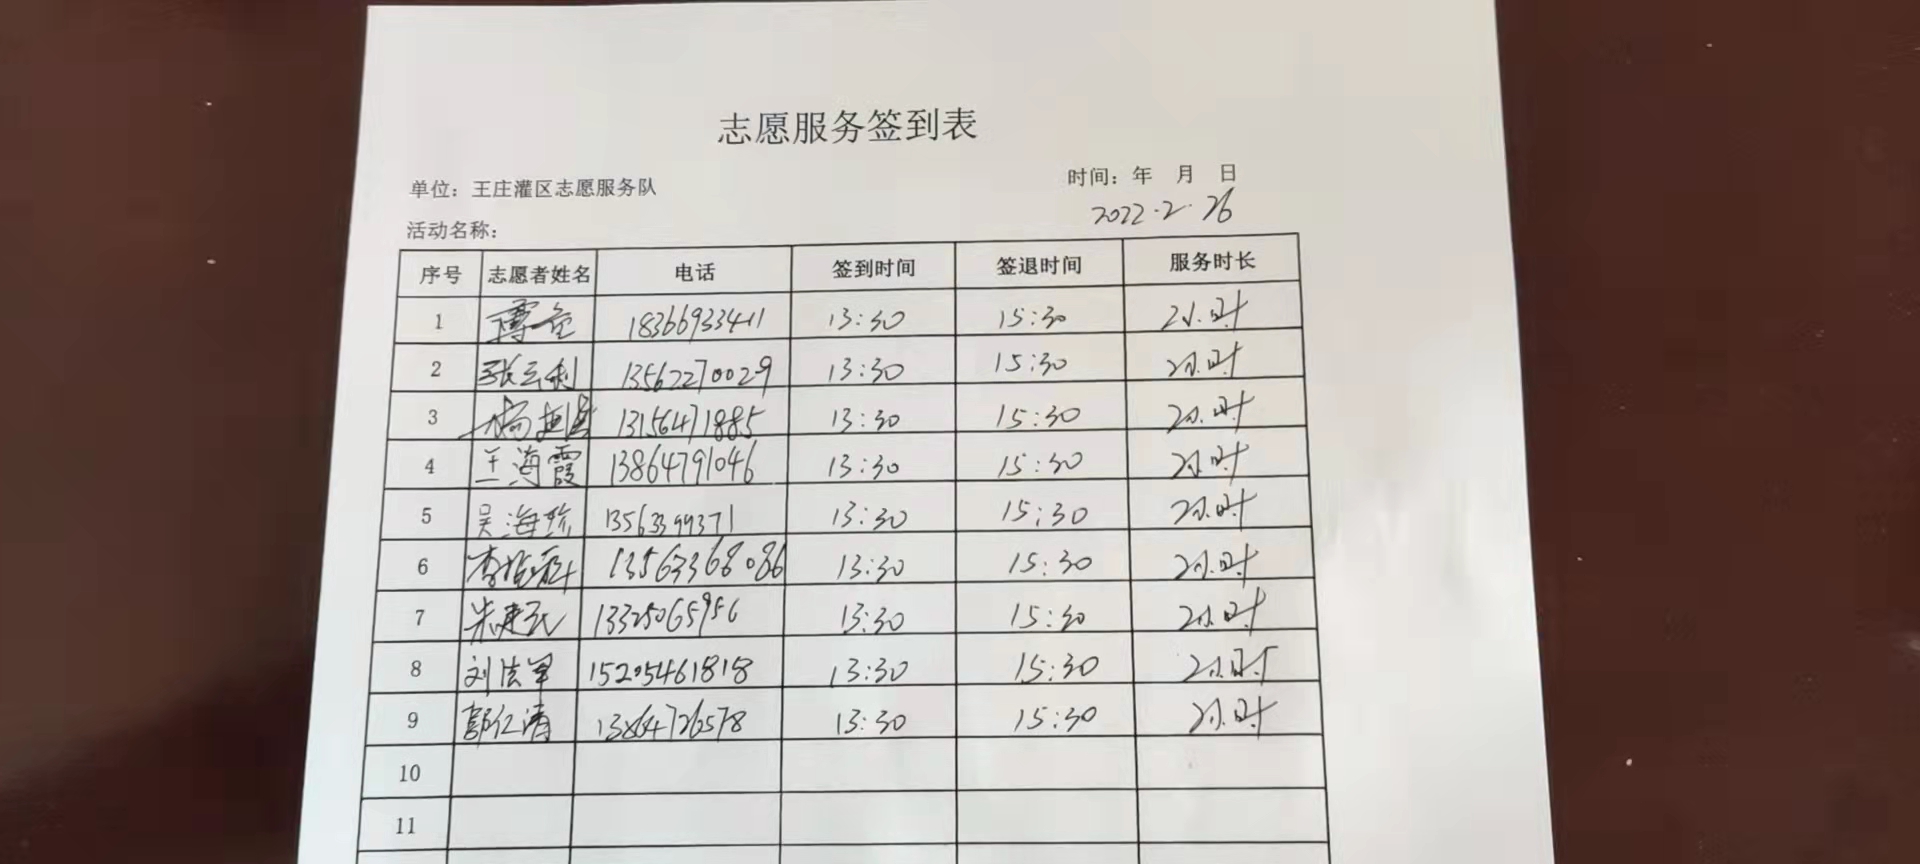 志愿服务签到表
单位：王庄灌区志愿服务队 时间：年 月 日
2022.2.26
活动名称：
序号 志愿者姓名 电话 签到时间 签退时间 服务时长
1 18366933411 13:30 15:30 2小时
2 张云利 13562270029 13:30 15:30 2小时
3 杨 13156471885 13:30 15:30 2小时
4 王海霞 13864791046 13:30 15:30 2小时
5 吴海珍 13563399371 13:30 15:30 2小时
6 李 13563368086 13:30 15:30 2小时
7 朱建民 13325065956 13:30 15:30 2小时
8 刘法军 15205461818 13:30 15:30 2小时
9 郭仁清 13864726578 13:30 15:30 2小时
10
11